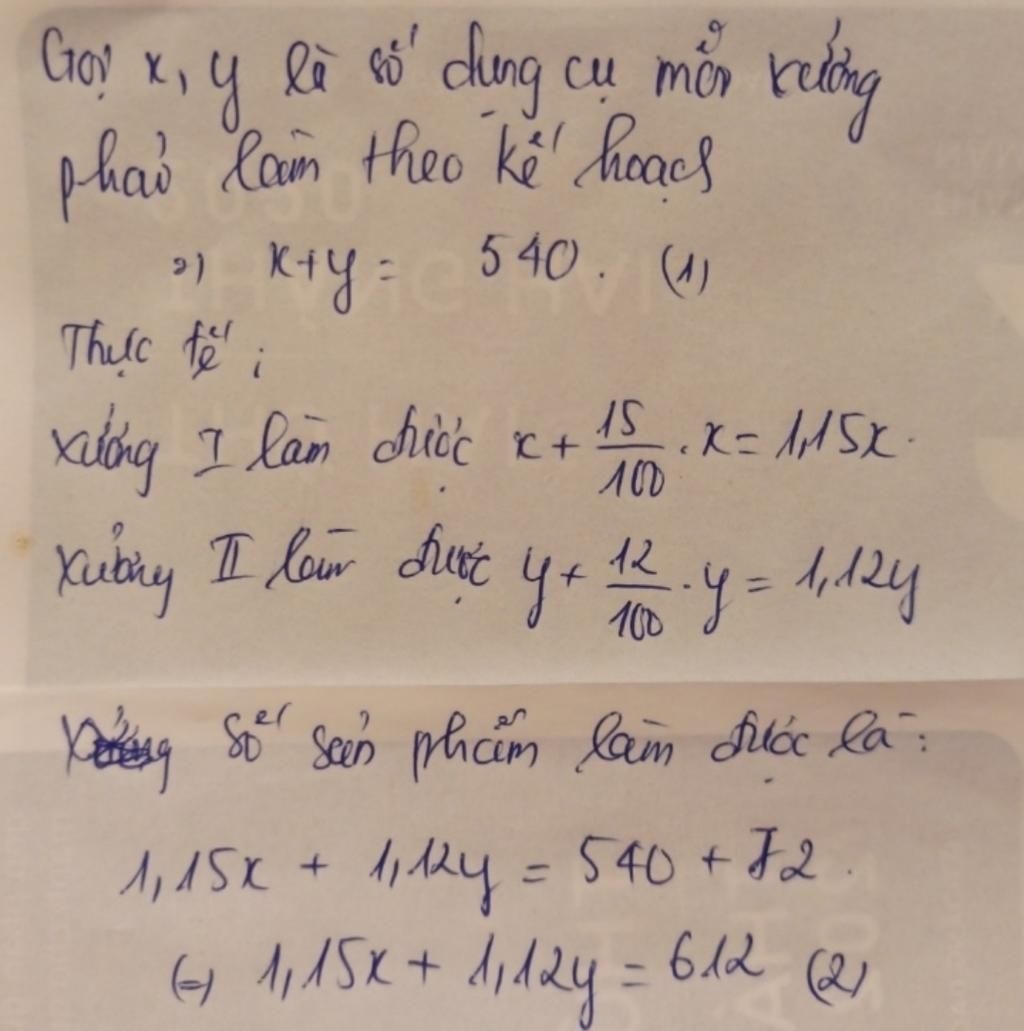 Gọi x, y là số dụng cụ mỗi xưởng
phải làm theo kế hoạch
=) x+y = 540. (1)
Thực tế:
Xưởng I làm được x + 15/100 . x = 1,15x.
Xưởng II làm được y + 12/100 . y = 1,12y
Số sản phẩm làm được là:
1,15x + 1,12y = 540 + 72.
(=) 1,15x + 1,12y = 612 (2)